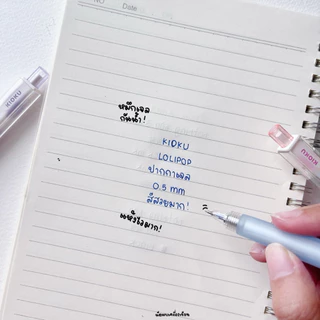 NO
Date
หมึกเจล
กันน้ำ!
KIDKU
LOLIPOP
ปากกาเจล
0.5 mm
สีสวยมาก!
แห้งไวมาก!
KIDKU
KIDKU